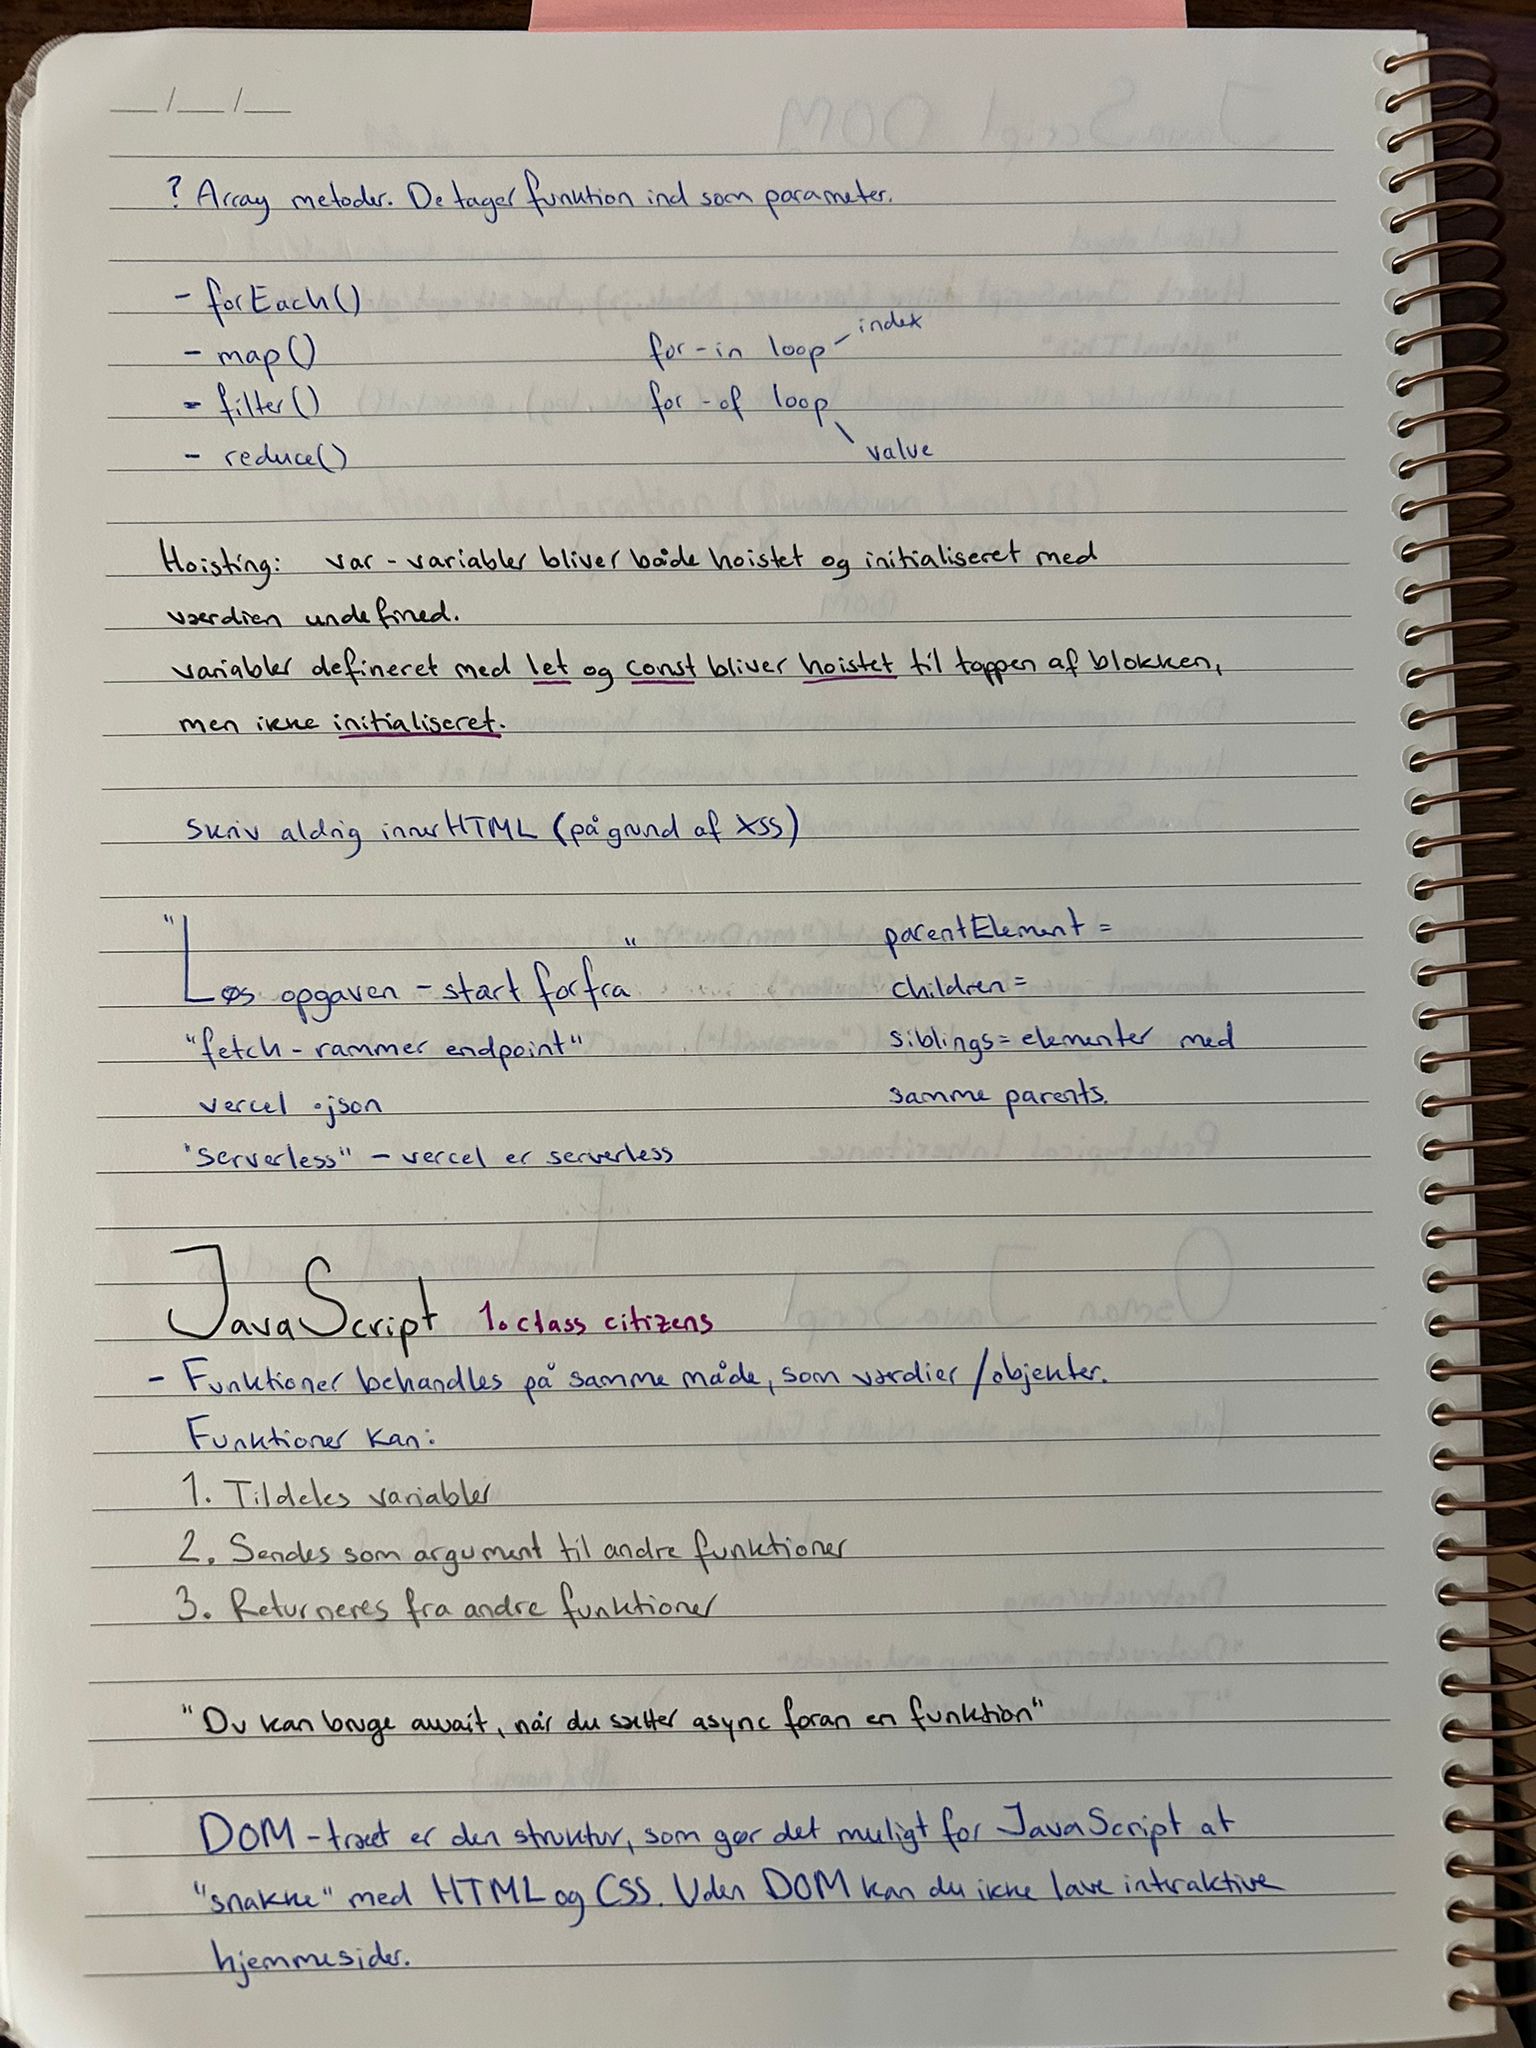 __/__/__
? Array metoder. De tager funktion ind som parameter.
- forEach()
- map()
- filter()
- reduce()
for-in loop - index
for-of loop \ value
Hoisting: var-variabler bliver både hoistet og initialiseret med
værdien undefined.
variabler defineret med let og const bliver hoistet til toppen af blokken,
men ikke initialiseret.
Skriv aldrig innerHTML (på grund af XSS)
"Løs opgaven - start forfra"
"fetch - rammer endpoint"
vercel .json
"serverless" - vercel er serverless
parentElement =
children =
siblings = elementer med
samme parents.
JavaScript 1. class citizens
- Funktioner behandles på samme måde, som værdier/objekter.
Funktioner kan:
1. Tildeles variabler
2. Sendes som argument til andre funktioner
3. Returneres fra andre funktioner
"Du kan bruge await, når du sætter async foran en funktion"
DOM-træet er den struktur, som gør det muligt for JavaScript at
"snakke" med HTML og CSS. Uden DOM kan du ikke lave interaktive
hjemmesider.